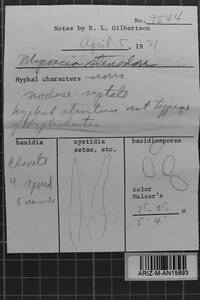 No. 9544
Notes by R. L. Gilbertson
April 5, 1971
Mycoacia stenodon
Hyphal characters mono
nodose-septate
hyphal structure not typical
of Hyphodontia
basidia
cystidia
setae, etc.
basidiospores
clavate
4-spored
color
Melzer's
µ
ARIZ-M-AN15893